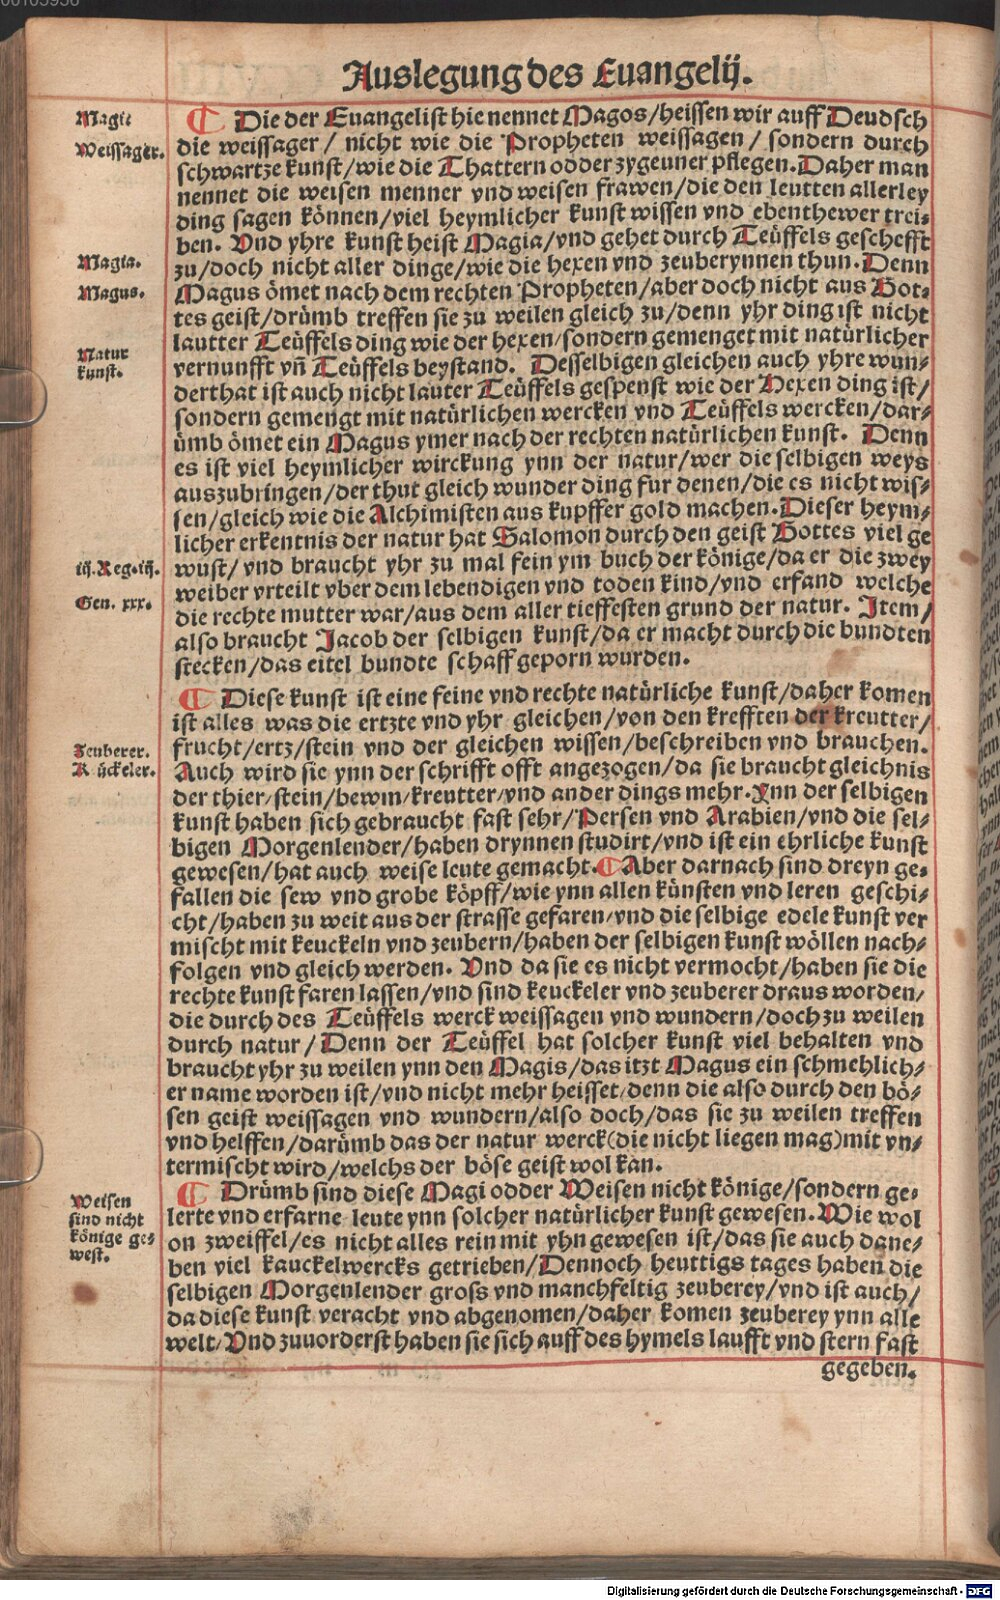 Auslegung des Euangelij.
Magie
Weissager.
¶ Die der Euangelist hie nennet Magos/heissen wir auff Deudsch
die weissager/ nicht wie die Propheten weissagen/ sondern durch
schwartze kunst/wie die Thattern odder zygeuner pflegen. Daher man
nennet die weisen menner vnd weisen frawen/die den leutten allerley
ding sagen können/viel heymlicher kunst wissen vnd ebenthewer trei⸗
ben. Vnd yhre kunst heist Magia/vnd gehet durch Teüffels geschefft
Magia.
zu/doch nicht aller dinge/wie die hexen vnd zeuberynnen thun. Denn
Magus.
Magus ömet nach dem rechten Propheten/aber doch nicht aus Got⸗
tes geist/drümb treffen sie zu weilen gleich zu/denn yhr ding ist nicht
lautter Teüffels ding wie der hexen/sondern gemenget mit natürlicher
Natur
kunst.
vernunfft vn̄ Teüffels beystand. Desselbigen gleichen auch yhre wun⸗
derthat ist auch nicht lauter Teüffels gespenst wie der Hexen ding ist/
sondern gemengt mit natürlichen wercken vnd Teüffels wercken/dar⸗
ümb ömet ein Magus ymer nach der rechten natürlichen kunst. Denn
es ist viel heymlicher wirckung ynn der natur/wer die selbigen weys
auszubringen/der thut gleich wunder ding fur denen/die es nicht wis⸗
sen/gleich wie die Alchimisten aus kupffer gold machen. Dieser heym⸗
licher erkentnis der natur hat Salomon durch den geist Gottes viel ge
iij.Reg.iij.
wust/ vnd braucht yhr zu mal fein ym buch der könige/da er die zwey
weiber vrteilt vber dem lebendigen vnd toden kind/vnd erfand welche
Gen. xxx.
die rechte mutter war/aus dem aller tieffesten grund der natur. Item/
also braucht Jacob der selbigen kunst/da er macht durch die bundten
stecken/das eitel bundte schaff geporn wurden.
¶ Diese kunst ist eine feine vnd rechte natürliche kunst/daher komen
ist alles was die ertzte vnd yhr gleichen/von den krefften der kreutter/
Zeuberer.
frucht/ertz/stein vnd der gleichen wissen/beschreiben vnd brauchen.
Kückeler.
Auch wird sie ynn der schrifft offt angezogen/da sie braucht gleichnis
der thier/stein/bewm/kreutter/vnd ander dings mehr. Ynn der selbigen
kunst haben sich gebraucht fast sehr/Persen vnd Arabien/vnd die sel⸗
bigen Morgenlender/haben drynnen studirt/vnd ist ein ehrliche kunst
gewesen/hat auch weise leute gemacht. ¶ Aber darnach sind dreyn ge⸗
fallen die sew vnd grobe köpff/wie ynn allen künsten vnd leren geschi⸗
cht/haben zu weit aus der strasse gefaren/vnd die selbige edele kunst ver
mischt mit keuckeln vnd zeubern/haben der selbigen kunst wöllen nach⸗
folgen vnd gleich werden. Vnd da sie es nicht vermocht/haben sie die
rechte kunst faren lassen/vnd sind keuckeler vnd zeuberer draus worden/
die durch des Teüffels werck weissagen vnd wundern/doch zu weilen
durch natur/ Denn der Teüffel hat solcher kunst viel behalten vnd
braucht yhr zu weilen ynn den Magis/das itzt Magus ein schmehlich⸗
er name worden ist/vnd nicht mehr heisset/denn die also durch den bö⸗
sen geist weissagen vnd wundern/also doch/das sie zu weilen treffen
vnd helffen/darümb das der natur werck(die nicht liegen mag)mit vn⸗
termischt wird/welchs der böse geist wol kan.
Weisen
sind nicht
könige ge⸗
west.
¶ Drümb sind diese Magi odder Weisen nicht könige/sondern ge⸗
lerte vnd erfarne leute ynn solcher natürlicher kunst gewesen. Wie wol
on zweiffel/es nicht alles rein mit yhn gewesen ist/das sie auch dane⸗
ben viel kauckelwercks getrieben/Dennoch heuttigs tages haben die
selbigen Morgenlender gross vnd manchfeltig zeuberey/vnd ist auch/
da diese kunst veracht vnd abgenomen/daher komen zeuberey ynn alle
welt/Vnd zuuorderst haben sie sich auff des hymels laufft vnd stern fast
gegeben.
Digitalisierung gefördert durch die Deutsche Forschungsgemeinschaft - DFG